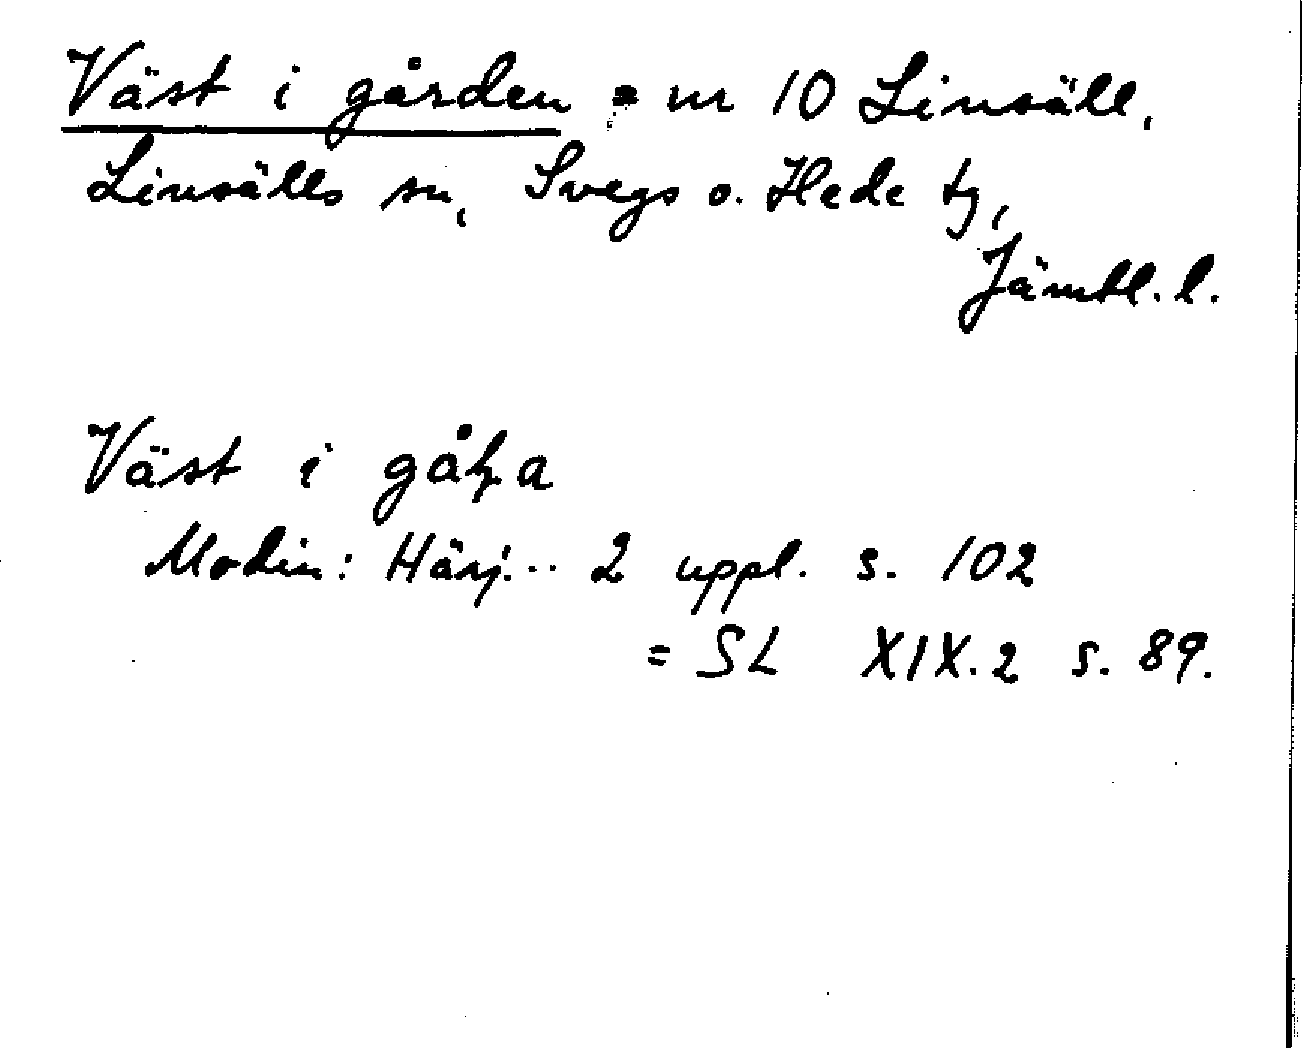 Väst i gården = nr 10 Linsäll,
Linsälls sn, Svegs o. Hede tg,
Jämtl. l.
Väst i
Modin: Härj... 2 uppl. s. 102
= SL XIX.2 s. 89.